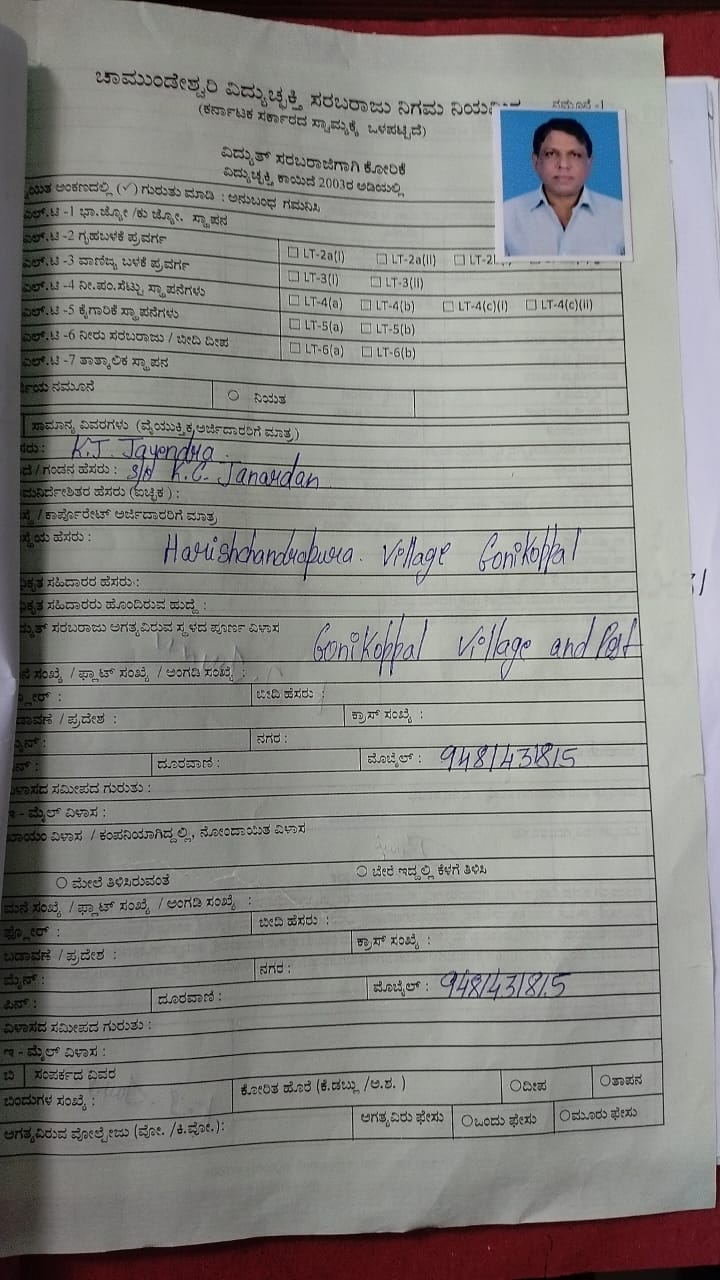 ಚಾಮುಂಡೇಶ್ವರಿ ವಿದ್ಯುಚ್ಛಕ್ತಿ ಸರಬರಾಜು ನಿಗಮ ನಮೂನೆ -1
(ಕರ್ನಾಟಕ ಸರ್ಕಾರದ ಸ್ವಾಮ್ಯಕ್ಕೆ ಒಳಪಟ್ಟಿದೆ)
ವಿದ್ಯುತ್ ಸರಬರಾಜಿಗಾಗಿ ಕೋರಿಕೆ
ವಿದ್ಯುಚ್ಛಕ್ತಿ ಕಾಯಿದೆ 2003ರ ಅಡಿಯಲ್ಲಿ
ಅಂಕಣದಲ್ಲಿ (✓) ಗುರುತು ಮಾಡಿ : ಅನುಬಂಧ ಗಮನಿಸಿ
ಎಲ್.ಟಿ -1 ಭಾ.ಜ್ಯೋ /ಕು ಜ್ಯೋ. ಸ್ಥಾಪನ
ಎಲ್.ಟಿ -2 ಗೃಹಬಳಕೆ ಪ್ರವರ್ಗ ☐ LT-2a(i) ☐ LT-2a(ii)
ಎಲ್.ಟಿ -3 ವಾಣಿಜ್ಯ ಬಳಕೆ ಪ್ರವರ್ಗ ☐ LT-3(i) ☐ LT-3(ii)
ಎಲ್.ಟಿ -4 ನೀ.ಪಂ.ಸೆಟ್ಟು ಸ್ಥಾಪನೆಗಳು ☐ LT-4(a) ☐ LT-4(b) ☐ LT-4(c)(i) ☐ LT-4(c)(ii)
ಎಲ್.ಟಿ -5 ಕೈಗಾರಿಕೆ ಸ್ಥಾಪನೆಗಳು ☐ LT-5(a) ☐ LT-5(b)
ಎಲ್.ಟಿ -6 ನೀರು ಸರಬರಾಜು / ಬೀದಿ ದೀಪ ☐ LT-6(a) ☐ LT-6(b)
ಎಲ್.ಟಿ -7 ತಾತ್ಕಾಲಿಕ ಸ್ಥಾಪನ
ನಮೂನೆ ○ ನಿಯತ
ಸಾಮಾನ್ಯ ವಿವರಗಳು (ವೈಯುಕ್ತಿಕ ಅರ್ಜಿದಾರರಿಗೆ ಮಾತ್ರ)
K.J. Jayendra
/ ಗಂಡನ ಹೆಸರು : S/o K.C. Janardan
ಹೆಸರು (ಐಚ್ಛಿಕ) :
/ ಕಾರ್ಪೊರೇಟ್ ಅರ್ಜಿದಾರರಿಗೆ ಮಾತ್ರ
ಹೆಸರು : Harishchandrapura. Village Gonikoppal
ಸಹಿದಾರರ ಹೆಸರು :
ಸಹಿದಾರರು ಹೊಂದಿರುವ ಹುದ್ದೆ :
ಸರಬರಾಜು ಅಗತ್ಯವಿರುವ ಸ್ಥಳದ ಪೂರ್ಣ ವಿಳಾಸ Gonikoppal Village and Post
ಸಂಖ್ಯೆ / ಫ್ಲಾಟ್ ಸಂಖ್ಯೆ / ಅಂಗಡಿ ಸಂಖ್ಯೆ :
ಬೀದಿ ಹೆಸರು :
/ ಪ್ರದೇಶ : ಕ್ರಾಸ್ ಸಂಖ್ಯೆ :
ನಗರ :
ದೂರವಾಣಿ : ಮೊಬೈಲ್ : 9481431815
ಸಮೀಪದ ಗುರುತು :
ಇ - ಮೈಲ್ ವಿಳಾಸ :
ವಿಳಾಸ / ಕಂಪನಿಯಾಗಿದ್ದಲ್ಲಿ, ನೋಂದಾಯಿತ ವಿಳಾಸ
○ ಮೇಲೆ ತಿಳಿಸಿರುವಂತೆ ○ ಬೇರೆ ಇದ್ದಲ್ಲಿ ಕೆಳಗೆ ತಿಳಿಸಿ
ಮನೆ ಸಂಖ್ಯೆ / ಫ್ಲಾಟ್ ಸಂಖ್ಯೆ / ಅಂಗಡಿ ಸಂಖ್ಯೆ :
ಫ್ಲೋರ್ : ಬೀದಿ ಹೆಸರು :
ಬಡಾವಣೆ / ಪ್ರದೇಶ : ಕ್ರಾಸ್ ಸಂಖ್ಯೆ :
ಮೈನ್ : ನಗರ :
ಪಿನ್ : ದೂರವಾಣಿ : ಮೊಬೈಲ್ : 9481431815
ವಿಳಾಸದ ಸಮೀಪದ ಗುರುತು :
ಇ - ಮೈಲ್ ವಿಳಾಸ :
ಬಿ ಸಂಪರ್ಕದ ವಿವರ
ಬಿಂದುಗಳ ಸಂಖ್ಯೆ : ಕೋರಿತ ಹೊರೆ (ಕೆ.ಡಬ್ಲು /ಅ.ಶ. ) ○ದೀಪ ○ತಾಪನ
ಅಗತ್ಯವಿರುವ ವೋಲ್ಟೇಜು (ವೋ. /ಕಿ.ವೋ.): ಅಗತ್ಯವಿರು ಫೇಸು ○ಒಂದು ಫೇಸು ○ಮೂರು ಫೇಸು